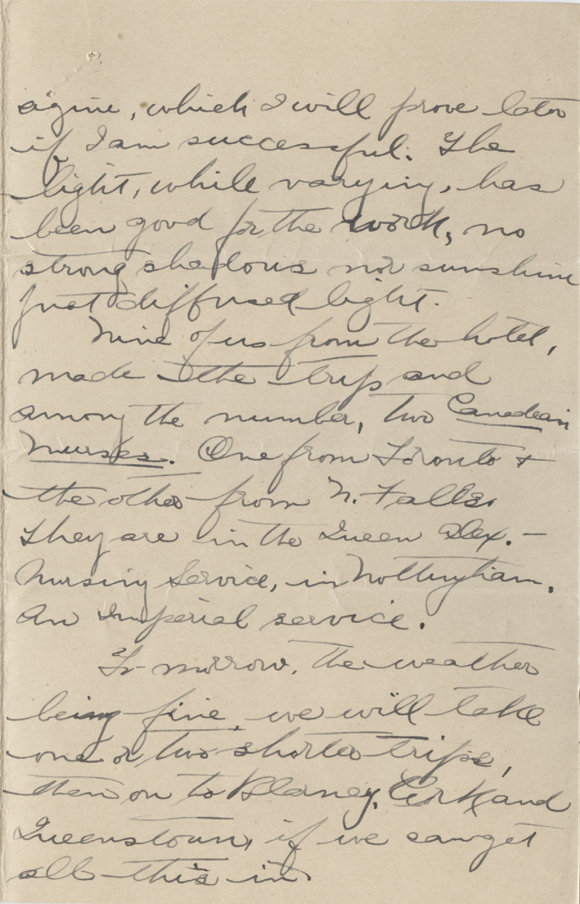 agine, which I will prove later
if I am successful. The
light, while varying, has
been good for the work, no
strong shadows nor sunshine
just diffused light.
Nine of us from the hotel,
made the trip and
among the number, two Canadian
Nurses. One from Toronto +
the other from N. Falls.
They are in the Queen Alex. -
Nursing Service, in Nottingham.
An Imperial service.
To-morrow, the weather
being fine, we will take
one or two shorter trips,
then on to Blarney, Cork and
Queenstown, if we can get
all this in.